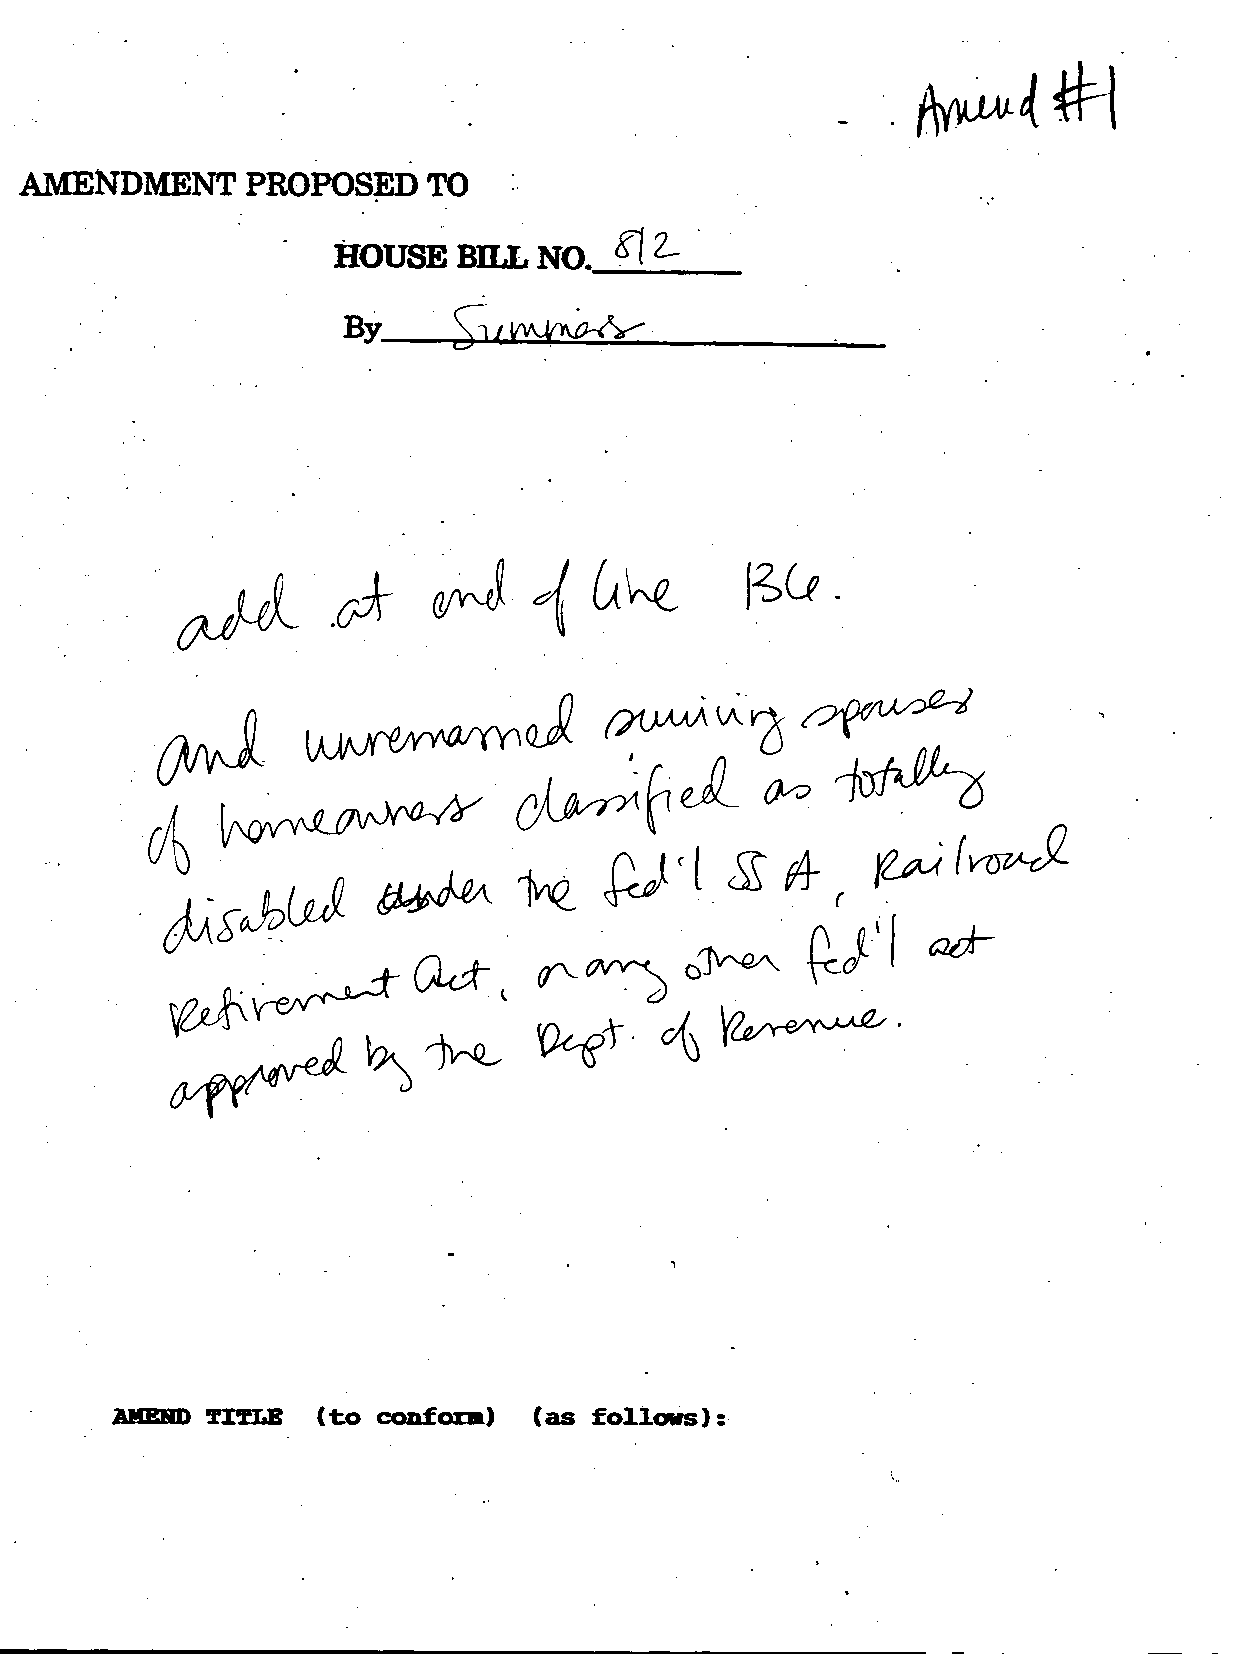 Amend #1
AMENDMENT PROPOSED TO
HOUSE BILL NO. 812
By Summers
add at end of line 136.
and unremarried surviving spouses
of homeowners classified as totally
disabled under the fed'l SSA, Railroad
Retirement Act, or any other fed'l act
approved by the Dept. of Revenue.
AMEND TITLE (to conform) (as follows):